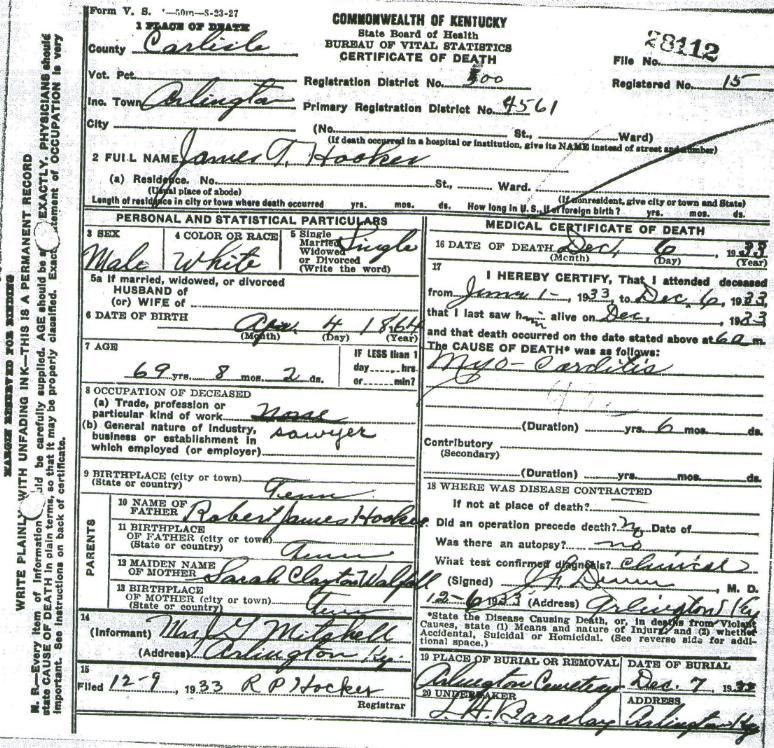 Form V. S. 1-50m-8-23-27
COMMONWEALTH OF KENTUCKY
State Board of Health
BUREAU OF VITAL STATISTICS
CERTIFICATE OF DEATH
28112
File No.
Registered No. 15
1 PLACE OF DEATH
County Carlisle
Vot. Pct.
Registration District No. 500
Inc. Town Arlington
Primary Registration District No. 4561
City
(No. St., Ward)
(If death occurred in a hospital or institution, give its NAME instead of street and number)
2 FULL NAME James T. Hooker
(a) Residence. No. St., Ward.
(Usual place of abode) (If nonresident, give city or town and State)
Length of residence in city or town where death occurred yrs. mos. ds. How long in U. S., if of foreign birth? yrs. mos. ds.
PERSONAL AND STATISTICAL PARTICULARS
3 SEX
Male
4 COLOR OR RACE
White
5 Single
Married
Widowed
or Divorced
(Write the word)
Single
5a If married, widowed, or divorced
HUSBAND of
(or) WIFE of
6 DATE OF BIRTH Apr. 4 1864
(Month) (Day) (Year)
7 AGE
69 yrs. 8 mos. 2 ds.
IF LESS than 1
day hrs.
or min?
8 OCCUPATION OF DECEASED
(a) Trade, profession or
particular kind of work none
(b) General nature of industry,
business or establishment in
which employed (or employer)
sawyer
9 BIRTHPLACE (city or town)
(State or country) Tenn
PARENTS
10 NAME OF
FATHER Robert James Hooker
11 BIRTHPLACE
OF FATHER (city or town)
(State or country) Tenn
12 MAIDEN NAME
OF MOTHER Sarah Clayton
13 BIRTHPLACE
OF MOTHER (city or town)
(State or country) Tenn
14
(Informant) Mitchell
(Address) Arlington Ky
15
Filed 12-9, 1933 R P Hocker
Registrar
MEDICAL CERTIFICATE OF DEATH
16 DATE OF DEATH Dec. 6, 1933
(Month) (Day) (Year)
17
I HEREBY CERTIFY, That I attended deceased
from 1-, 1933, to Dec. 6, 1933
that I last saw him alive on Dec., 1933
and that death occurred on the date stated above at 6 a m.
The CAUSE OF DEATH* was as follows:
Myo-Carditis
(Duration) yrs. 6 mos. ds.
Contributory
(Secondary)
(Duration) yrs. mos. ds.
18 WHERE WAS DISEASE CONTRACTED
If not at place of death?
Did an operation precede death? No Date of
Was there an autopsy? no
What test confirmed diagnosis? clinical
(Signed) M. D.
12-6 1933 (Address) Arlington Ky
*State the Disease Causing Death, or, in deaths from Violent
Causes, state (1) Means and nature of Injury and (2) whether
Accidental, Suicidal or Homicidal. (See reverse side for addi-
tional space.)
19 PLACE OF BURIAL OR REMOVAL
Arlington Cemetery
DATE OF BURIAL
Dec. 7, 1933
20 UNDERTAKER
L. H. Barclay
ADDRESS
Arlington Ky
MARGIN RESERVED FOR BINDING
WRITE PLAINLY WITH UNFADING INK—THIS IS A PERMANENT RECORD
N. B.—Every item of information should be carefully supplied. AGE should be EXACTLY. PHYSICIANS should
state CAUSE OF DEATH in plain terms, so that it may be properly classified. Exact statement of OCCUPATION is very
important. See instructions on back of certificate.